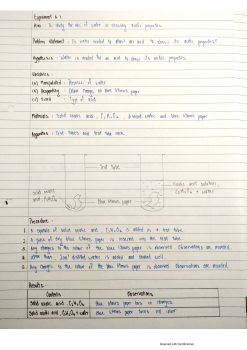 Experiment 6.1
Aim : To study the role of water in showing acidic properties
Problem statement : Is water needed to allow an acid to show its acidic properties?
Hypothesis : Water is needed for an acid to show its acidic properties.
Variables :
(a) Manipulated : Presence of water
(b) Responding : Colour change on blue litmus paper
(c) Fixed : Type of acid
Materials : Solid oxalic acid, C₂H₂O₄, distilled water and blue litmus paper
Apparatus : Test tubes and test tube rack
Test tube
Solid oxalic acid, C₂H₂O₄
Blue litmus paper
Oxalic acid solution, C₂H₂O₄ + water
Procedure :
1. A spatula of solid oxalic acid, C₂H₂O₄ is added in a test tube.
2. A piece of dry blue litmus paper is inserted into the test tube.
3. Any changes to the colour of the blue litmus paper is observed. Observations are recorded.
4. 2cm³ distilled water is added and shaken well.
5. Any changes to the colour of the blue litmus paper is observed. Observations are recorded.
Results :
Contents Observations
Solid oxalic acid, C₂H₂O₄ Blue litmus paper has no changes.
Solid oxalic acid, C₂H₂O₄ + water Blue litmus paper turns red colour
Scanned with CamScanner